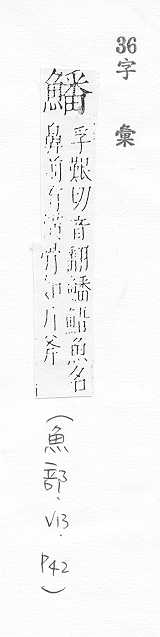 36字彙
鱕
孚艱切音翻鱕䱡魚名
鼻前有橫骨如斤斧
(魚部.V13.P42)